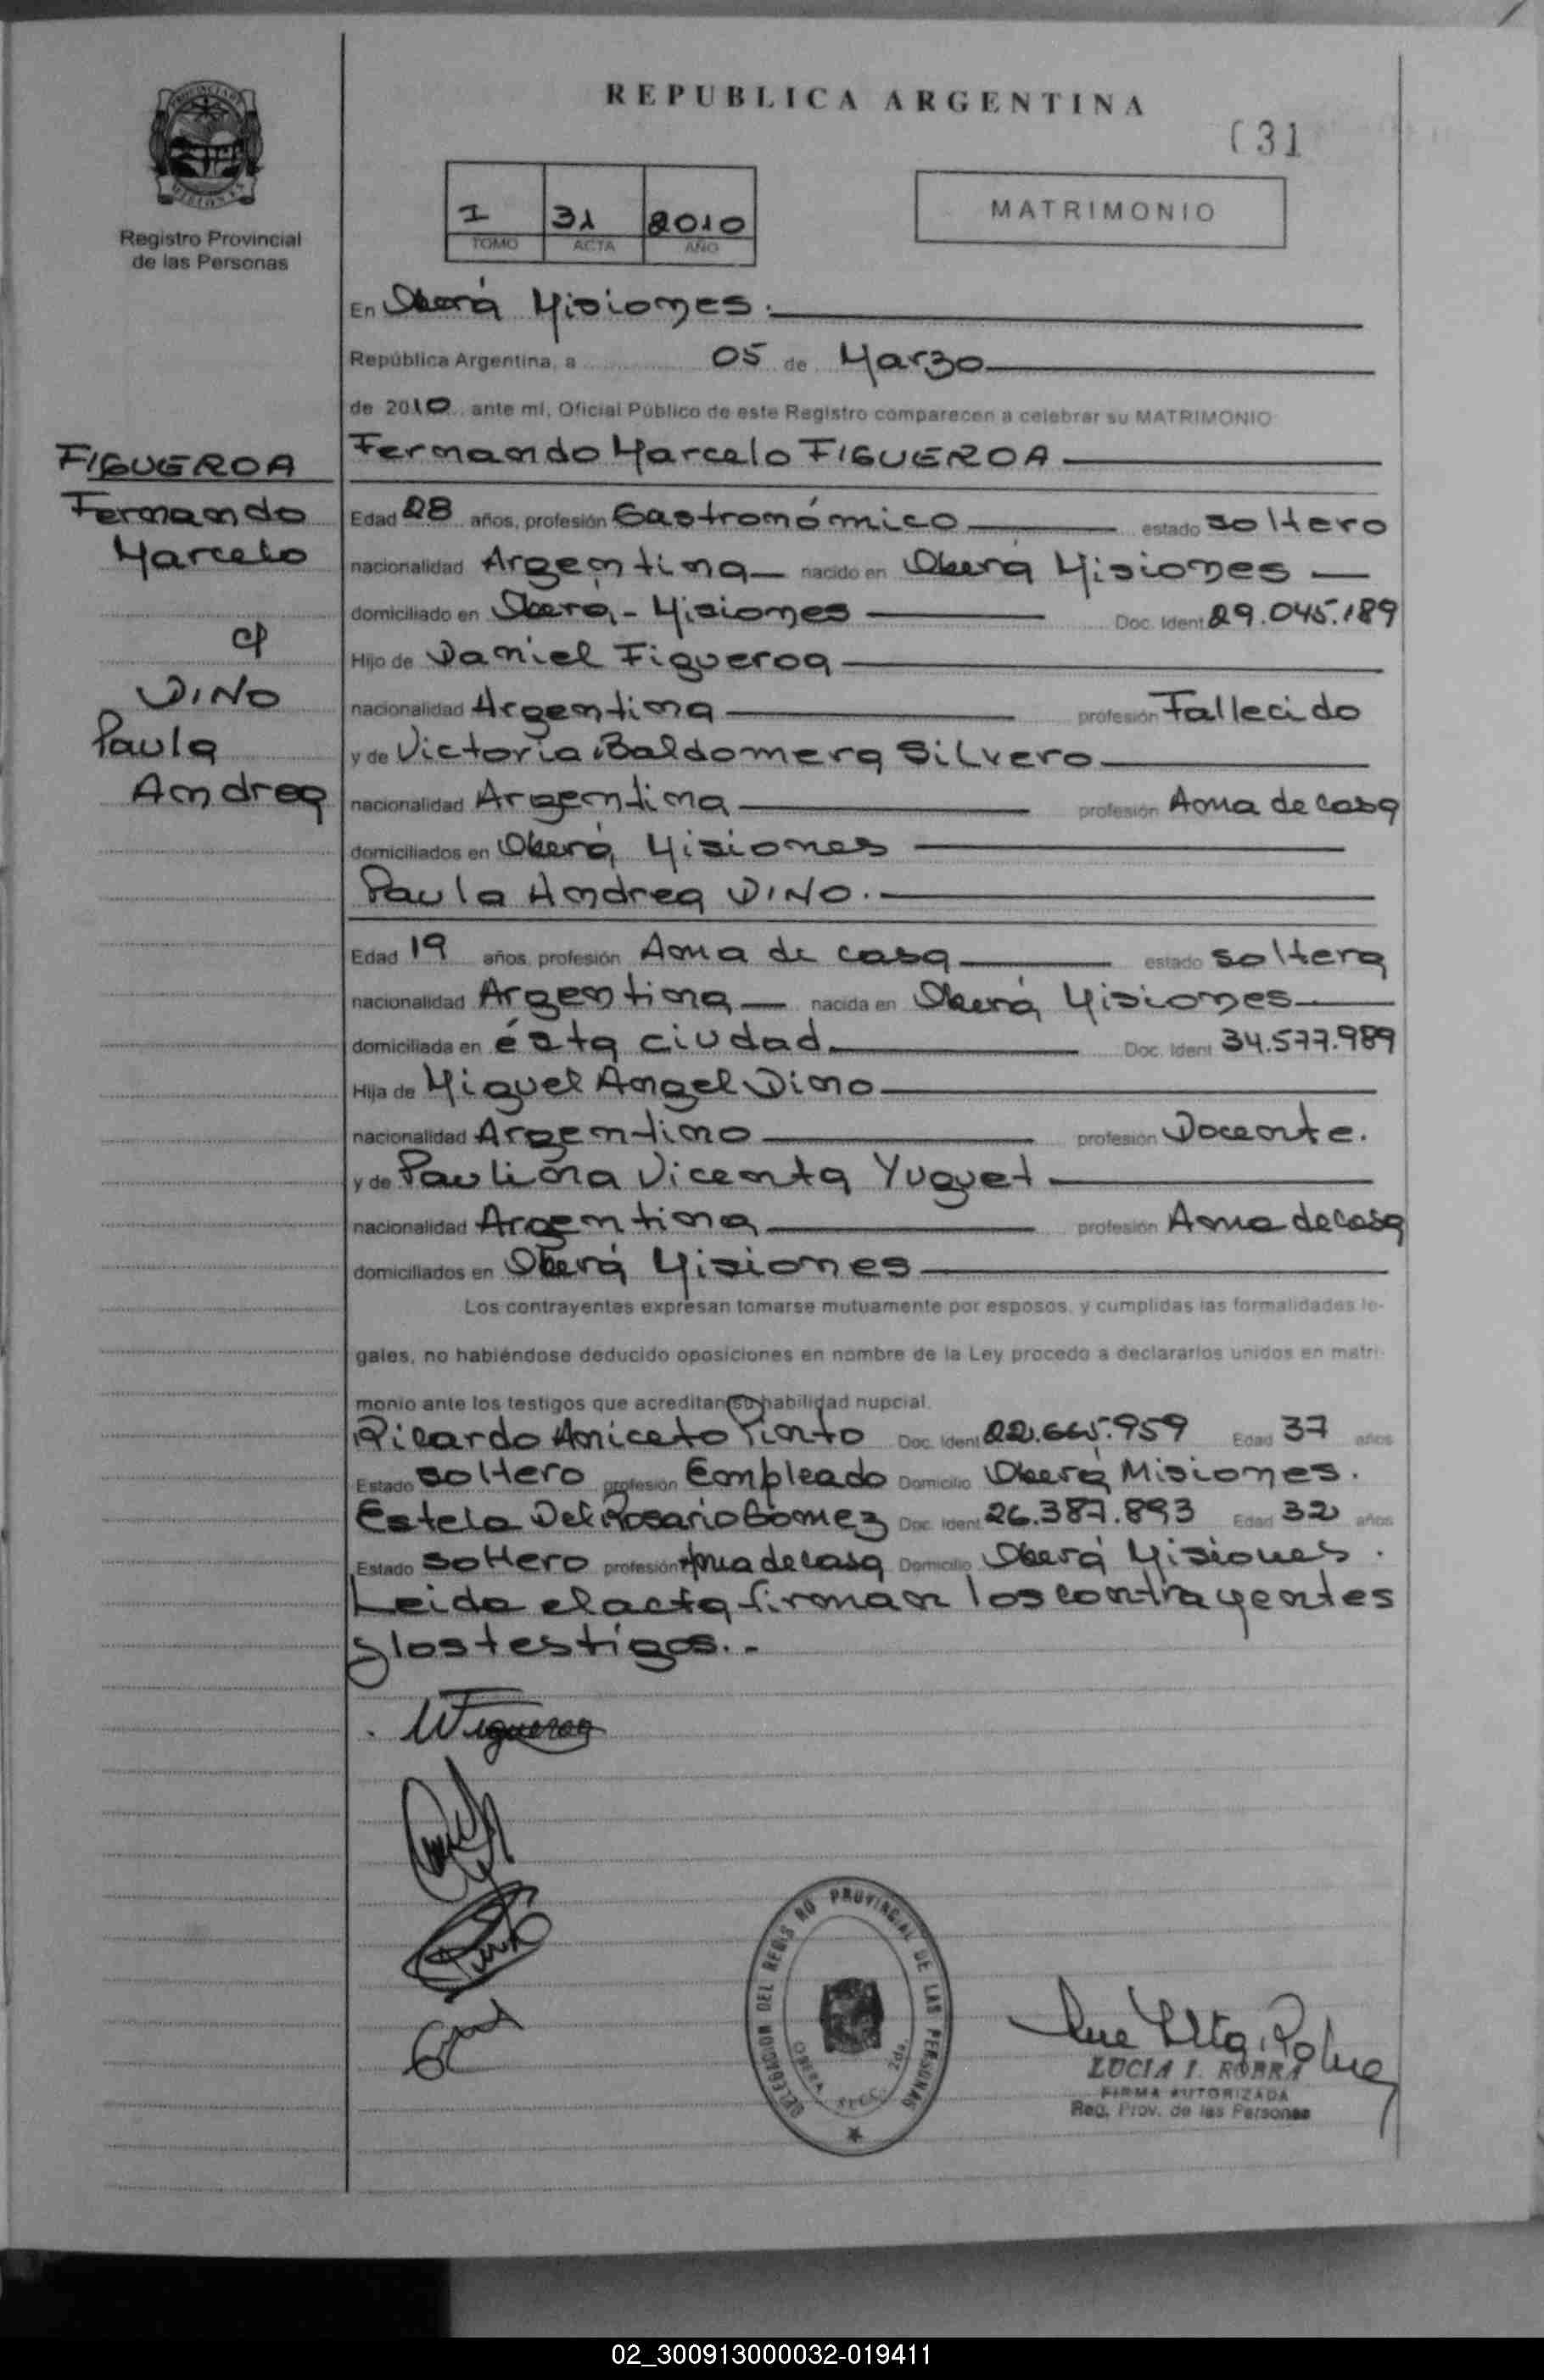 REPUBLICA ARGENTINA
(31
I 31 2010
TOMO ACTA AÑO
MATRIMONIO
Registro Provincial
de las Personas
En Oberá Misiones.
República Argentina, a 05 de Marzo
de 2010 ante mí, Oficial Público de este Registro comparecen a celebrar su MATRIMONIO
FIGUEROA
Fernando
Marcelo
c/
DINO
Paula
Andrea
Fernando Marcelo FIGUEROA
Edad 28 años, profesión Gastronómico estado soltero
nacionalidad Argentina nacido en Oberá Misiones
domiciliado en Oberá - Misiones Doc. Ident 29.045.189
Hijo de Daniel Figueroa
nacionalidad Argentina profesión Fallecido
y de Victoria Baldomera Silvero
nacionalidad Argentina profesión Ama de casa
domiciliados en Oberá, Misiones
Paula Andrea DINO.
Edad 19 años, profesión Ama de casa estado soltera
nacionalidad Argentina nacida en Oberá, Misiones
domiciliada en ésta ciudad. Doc. Ident 34.577.989
Hija de Miguel Angel Dino
nacionalidad Argentino profesión Docente.
y de Paulina Vicenta Yuguet
nacionalidad Argentina profesión Ama de casa
domiciliados en Oberá Misiones
Los contrayentes expresan tomarse mutuamente por esposos, y cumplidas las formalidades le-
gales, no habiéndose deducido oposiciones en nombre de la Ley procedo a declararlos unidos en matri-
monio ante los testigos que acreditan su habilidad nupcial.
Ricardo Aniceto Pinto Doc. Ident 22.665.959 Edad 37 años
Estado soltero profesión Empleado Domicilio Oberá Misiones.
Estela Del Rosario Gomez Doc. Ident 26.387.893 Edad 32 años
Estado soltero profesión Ama de casa Domicilio Oberá Misiones.
Leida el acta firman los contrayentes
y los testigos. -
Figueroa
DELEGACION DEL REGISTRO PROVINCIAL DE LAS PERSONAS
OBERA SECC. 2da.
LUCIA I. ROBRA
FIRMA AUTORIZADA
Reg. Prov. de las Personas
02_300913000032-019411